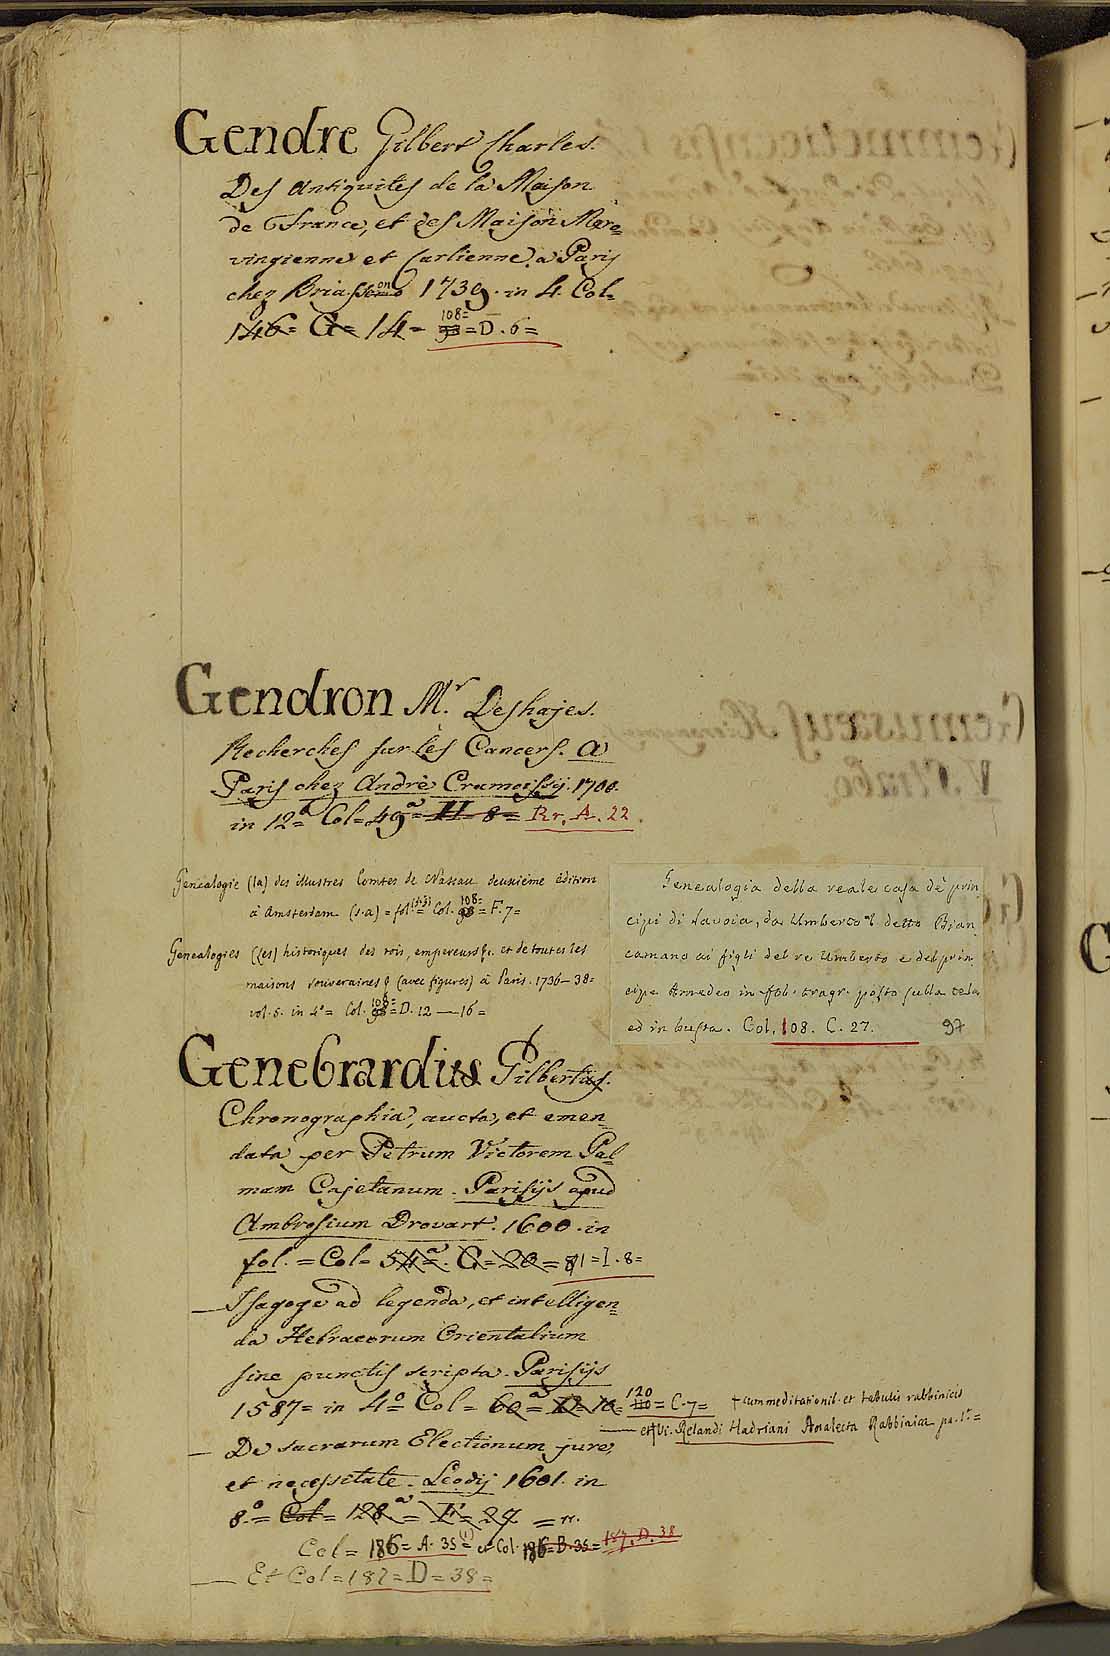 Gendre Gilbert Charles.
Des Antiquites de la Maison
de France, et des Maison Mero=
vingienne et Carlienne. a Paris
chez Briasson 1739. in 4. Col=
146= G= 14= 108= 93= D. 6=
Gendron M.r Deshajes.
Recherches sur les Cancers. A
Paris chez Andrè Cramoissij. 1700.
in 12.º Col= 49ª= H= 8= Rr. A. 22.
Genealogie (la) des illustres Comtes de Nassau deuxième édition
à Amsterdam (s.a) = fol. = Col. 108= 98= F. 7=
Genealogies (les) historiques des rois, empereurs &. et de toutes les
maisons souveraines & (avec figures) à Paris. 1736-38=
vol. 5. in 4º= Col. 108= 98= D. 12 — 16=
Genealogia della reale casa de' prin
cipi di Savoia, da Umberto Iº detto Bian
camano ai figli del re Umberto e del prin
cipe Amedeo in fol. tragr. posto sulla tela
ed in busta. Col. 108. C. 27. 97
Genebrardius Gilbertus.
Chronographia, aucta, et emen=
data per Petrum Victorem Pal=
mam Cajetanum. Parisijs apud
Ambrosium Drovart. 1600. in
fol. = Col= 54ª= G= 20= 81= I. 8=
— Isagoge ad legenda, et intelligen=
da Hebraeorum Orientalium
sine punctis scripta. Parisijs
1587= in 4º= Col= 60ª= D= 10= 120 110= C. 7= † cum meditationib. et tabulis rabbinicis
— et † Vi. Relandi Hadriani Analecta Rabbinica pa. 1ª=
— De sacrarum Electionum jure,
et necessitate. Leodij 1601. in
8.º= Col= 128ª= F= 27 = n.
Col= 186= A. 35 (1)= et Col. 186= B. 35= 187. D. 38
— Et Col= 187= D= 38=